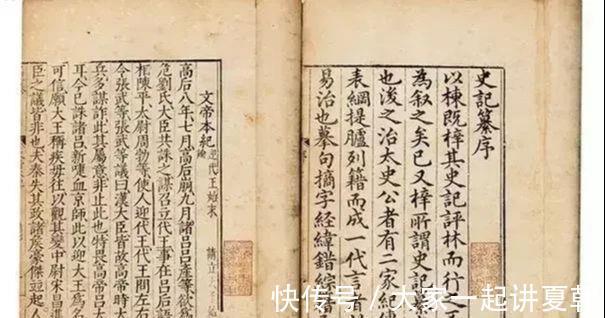 史記纂序
以棟既梓其史記評林而行之
為叙之矣已又梓所謂史記
也後之治太史公者有二家紀
表綱提臚列籍而成一代言者
易治也摹句摘字經緯錯綜
文帝本紀 代王始末 請立
高后八年七月高后崩九月諸呂呂產等欲為
危劉氏大臣共誅之謀召立代王事在呂后
相陳平太尉周勃等使人迎代王代王問左右
令張武等張武等議曰漢大臣皆故高帝時大
兵多謀詐此其屬意非止此也特畏高帝呂太
耳今已誅諸呂新喋血京師此以迎大王
可信願大王稱疾毋往以觀其變中尉宋昌進
臣之議皆非也夫秦失其政諸矦豪傑竝起人
快传号 / 大家一起讲夏